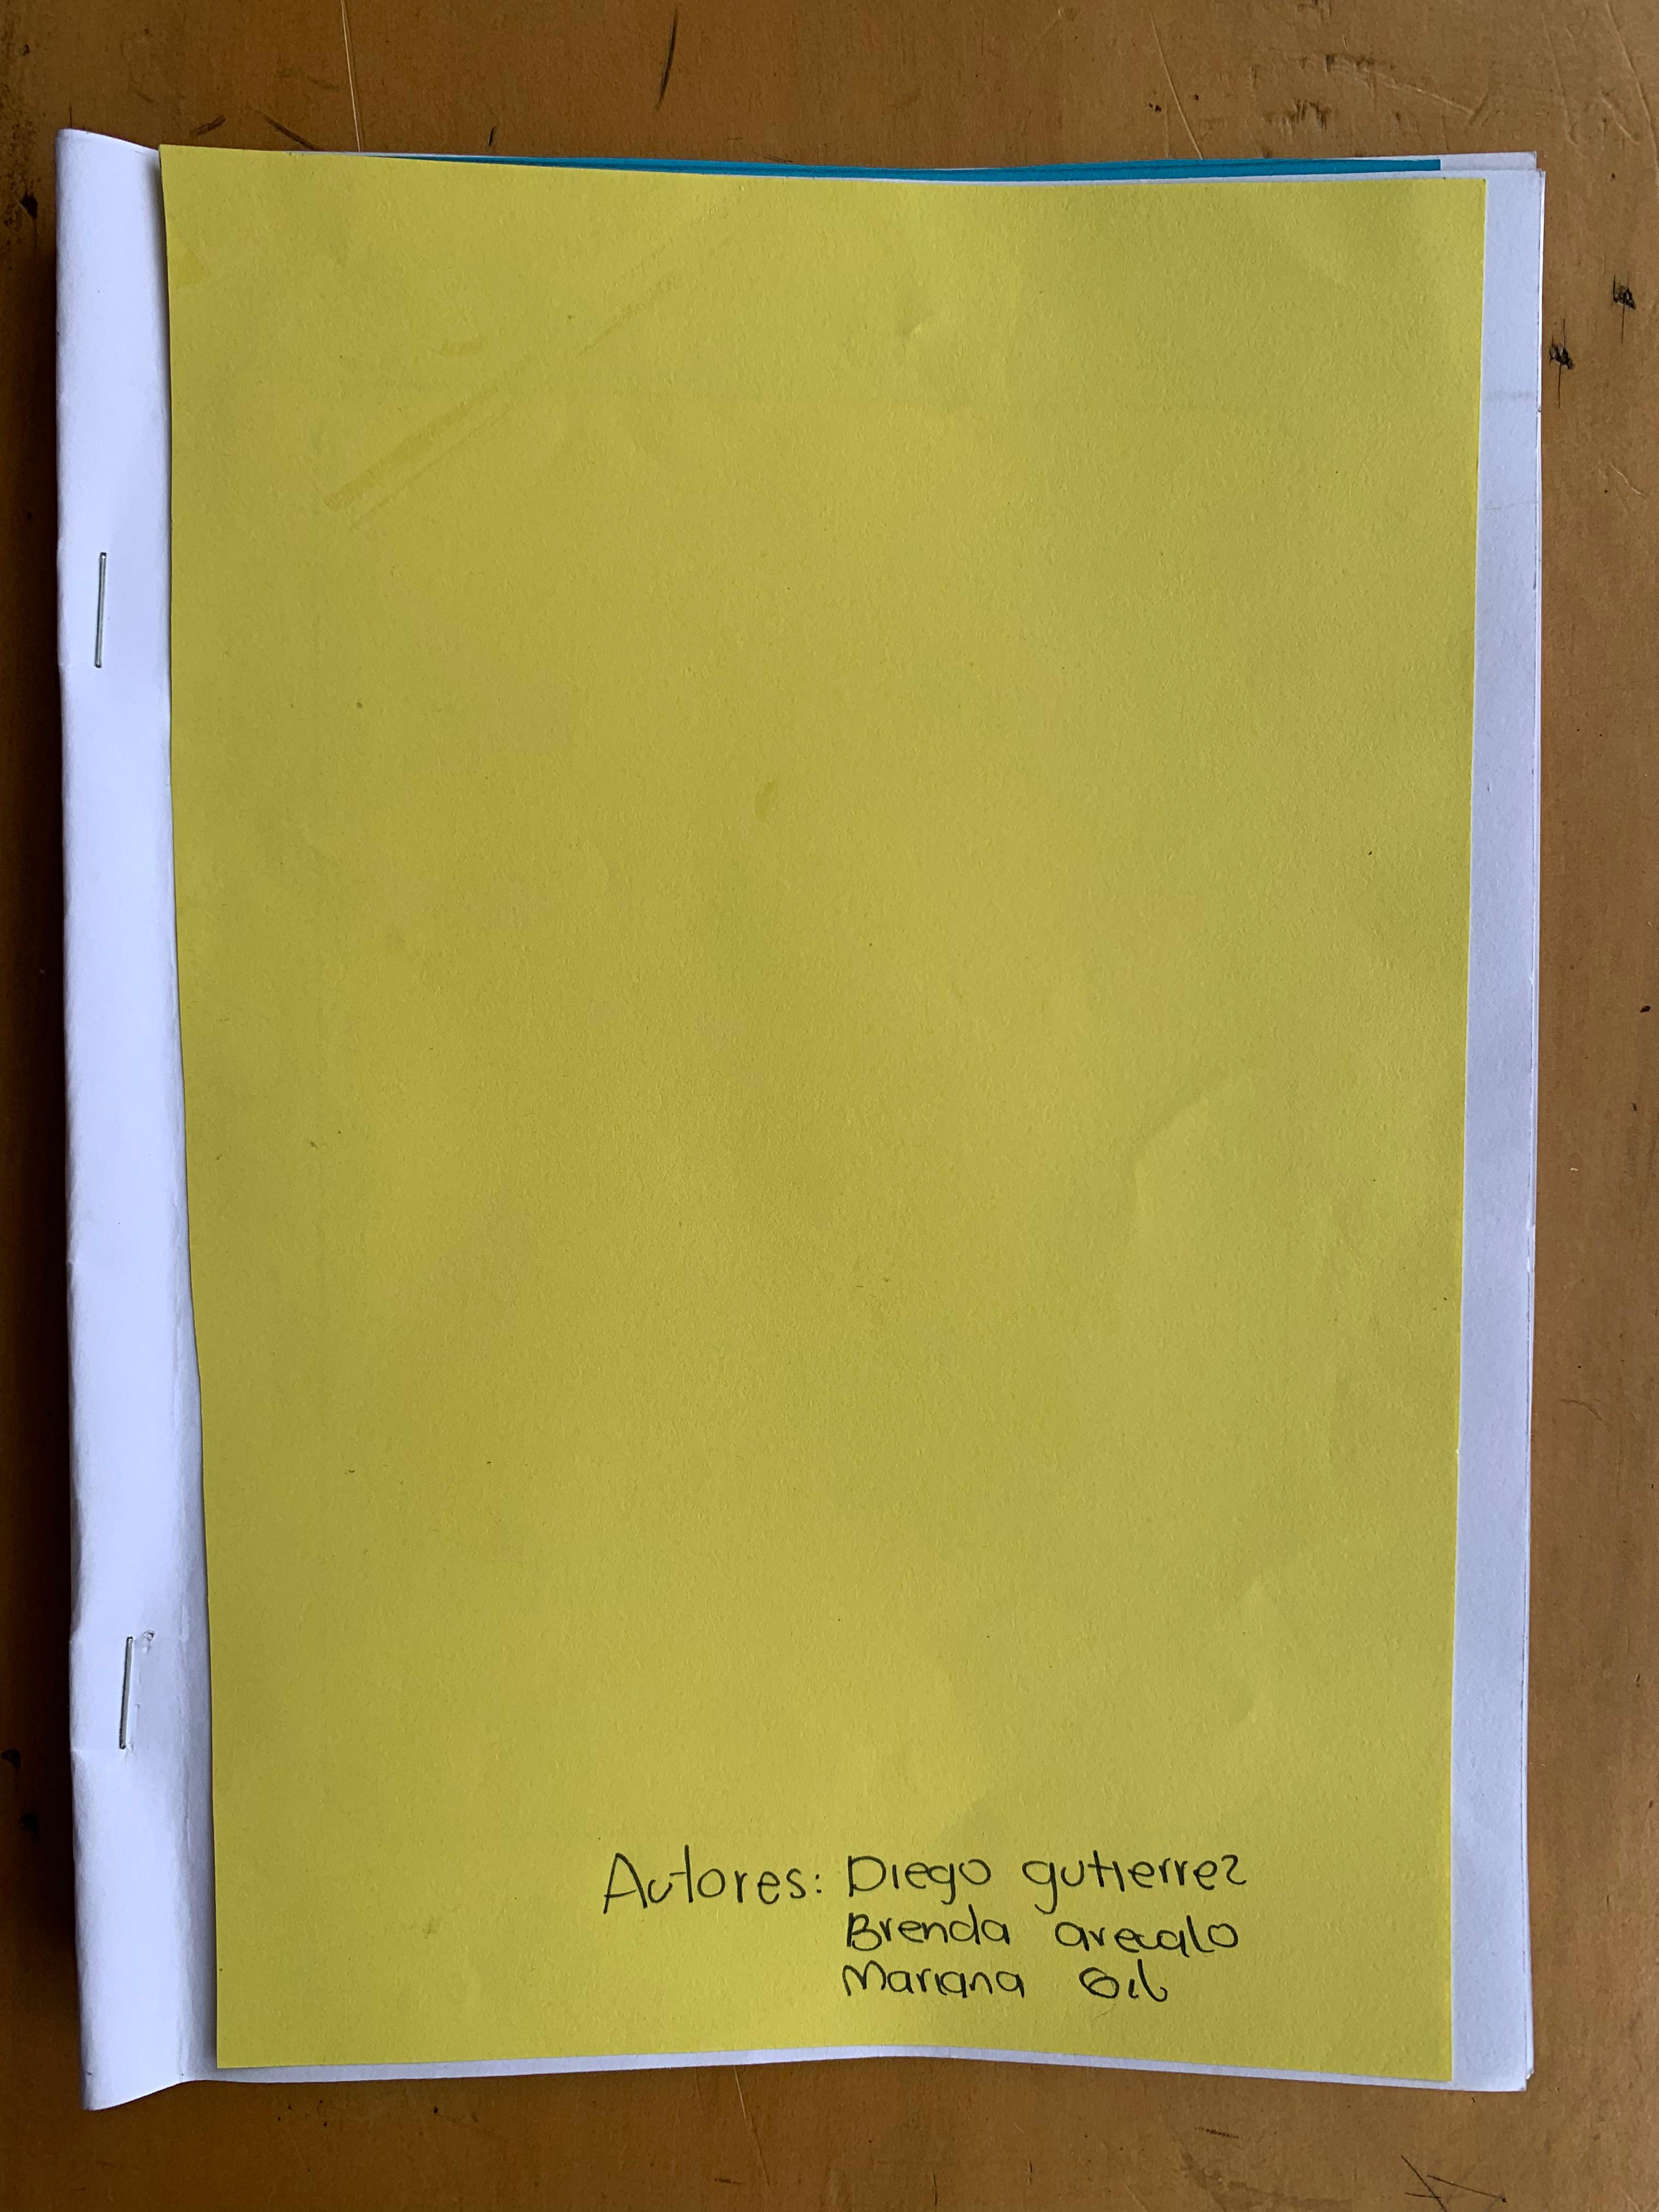 Autores: Diego gutierrez
Brenda arevalo
Mariana Gil